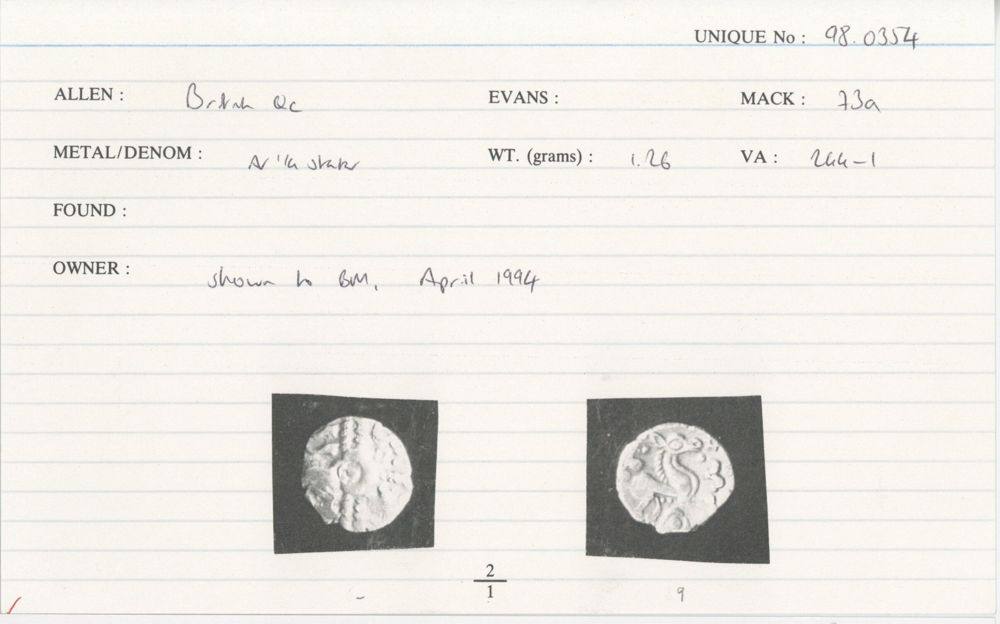 UNIQUE No : 98.0354
ALLEN : British Qc EVANS : MACK : 73a
METAL/DENOM : Av 1/4 stater WT. (grams) : 1.26 VA : 244-1
FOUND :
OWNER : shown to BM, April 1994
2
1
- 9